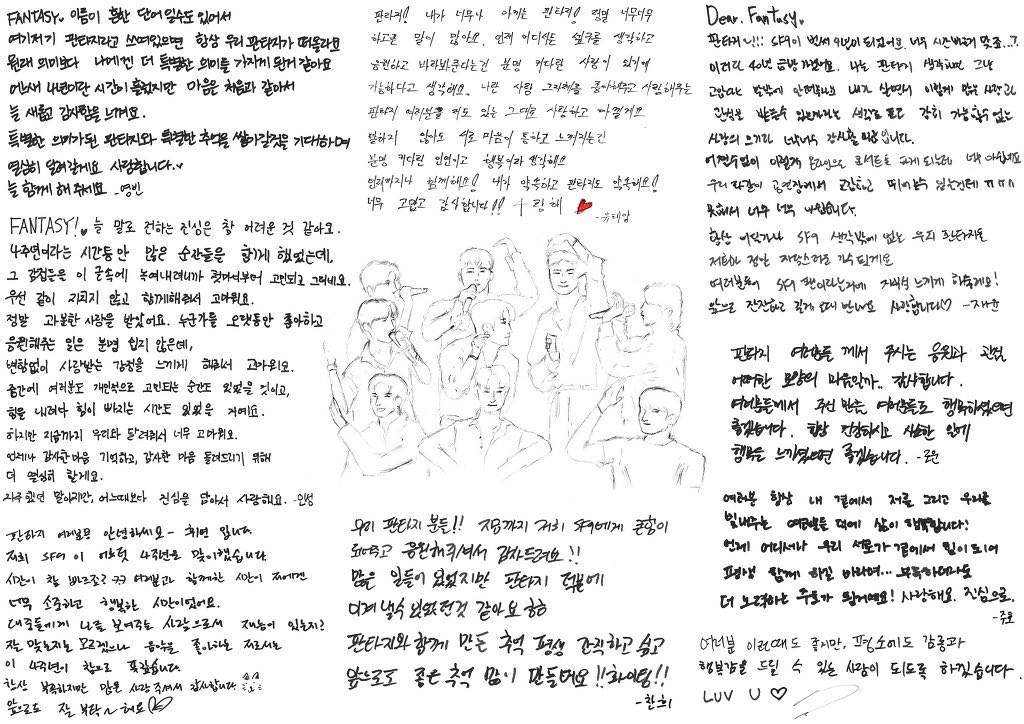 FANTASY. 이름이 흔한 단어일수도 있어서
여기저기 판타지라고 쓰여있으면 항상 우리 판타지가 떠올라요
원래 의미보다 나에겐 더 특별한 의미를 가지게 된거 같아요
어느새 4년이란 시간이 흘렀지만 마음은 처음과 같아서
늘 새롭고 감사함을 느껴요.
특별한 의미가된 판타지와 특별한 추억을 쌓아갈것을 기대하며
열심히 달려갈게요 사랑합니다.
늘 함께 해 줘요 -영빈
FANTASY! 늘 말로 전하는 진심은 참 어려운 것 같아요.
4주년이라는 시간동안 많은 순간들을 함께 했었는데,
그 감정들을 이 글속에 녹여내려니까 첫마디부터 고민되고 그러네요.
우선 같이 지치지 않고 함께해줘서 고마워요.
정말 과분한 사랑을 받았어요. 누군가를 오랫동안 좋아하고
응원해주는 일은 분명 쉽지 않은데,
변함없이 사랑받는 감정을 느끼게 해줘서 고마워요.
중간에 여러분도 개인적으로 고민되는 순간도 있었을 것이고,
힘을 내려다 힘이 빠지는 시간도 있었을 거예요.
하지만 지금까지 우리와 달려줘서 너무 고마워요.
언제나 감사한 마음 기억하고, 감사한 마음 돌려드리기 위해
더 열심히 할게요.
자주 했던 말이지만, 어느때보다 진심을 담아서 사랑해요. -인성
판타지 여러분 안녕하세요~ 휘영 입니다
저희 SF9 이 어느덧 4주년을 맞이했습니다
시간이 참 빠르죠? ㅋㅋ 여러분과 함께한 시간이 저에겐
너무 소중하고 행복한 시간이었어요.
대중들에게 나를 보여주는 사람으로서 재능이 있는지?
잘 맞는지는 모르겠으나 음악을 좋아하는 저로서는
이 4주년이 참으로 뜻깊습니다
한참 부족하지만 많은 사랑 주셔서 감사합니다
앞으로도 잘 부탁~ 해요
판타지! 내가 너무나 아끼는 판타지! 정말 너무너무
하고픈 말이 많아요. 언제 어디서든 서로를 생각하고
응원하고 바라봐준다는건 분명 커다란 사랑이 있기에
가능하다고 생각해요. 나란 사람 그자체를 좋아해주고 사랑해주는
판타지 여러분을 저도 있는 그대로 사랑하고 아낄게요
말하지 않아도 서로 마음이 통하고 느껴지는건
분명 커다란 인연이고 행복이라 생각해요
언제까지나 함께해요! 내가 약속하고 판타지도 약속해요!
너무 고맙고 감사합니다!! 사랑해
-유태양
우리 판타지 분들!! 지금까지 저희 SF9에게 큰힘이
되어주고 응원해주셔서 감사드려요!!
많은 일들이 있었지만 판타지 덕분에
이겨낼수 있었던것 같아요 ㅎㅎ
판타지와 함께 만든 추억 평생 간직하고 싶고
앞으로도 좋은 추억 많이 만들어요!! 화이팅!!
-찬희
Dear. Fantasy.
판타지~!!! SF9이 벌써 4년이 되었어요. 너무 시간빠르지 않죠...?
이러다 40년 금방 가겠어요. 나는 판타지 생각하면 그냥
고맙다는 말밖에 안떠올라요 내가 살면서 이렇게 많은 사랑과
관심을 받을수 있을까라는 생각도 들고 감히 가늠할수 없는
사랑의 크기라 너무너무 감사할 따름입니다.
어쩔수없이 이렇게 온라인으로 콘서트를 하게 되는데 너무 아쉽네요
우리 다같이 공연장에서 교감하고 뛰어놀수 있는건데 ㅠㅠㅠ
못해서 너무 너무 아쉽습니다.
항상 어딜가나 SF9 생각밖에 없는 우리 판타지들
저희가 정말 자랑스러운 가수 될게요
여러분들이 SF9 팬이라는거에 자부심 느끼게 해줄게요!
앞으로 건강하고 길게 오래 만나요 사랑합니다♡ -재윤
판타지 여러분들 께서 주시는 응원과 관심
어떠한 모양의 마음일까.. 감사합니다.
여러분들께서 주신 만큼 여러분들도 행복하셨으면
좋겠습니다. 항상 건강하시고 사소한 일에
행복을 느끼셨으면 좋겠습니다. -로운
여러분 항상 내 곁에서 저를 그리고 우리를
빛내주는 여러분들 덕에 삶이 행복합니다!
언제 어디서나 우리 서로가 곁에서 힘이 되어
평생 함께 하길 바라며... 부족하더라도
더 노력하는 주호가 될게요! 사랑해요. 진심으로.
-주호
여러분 이런때도 좋지만, 평소에도 감동과
행복감을 드릴 수 있는 사람이 되도록 하겠습니다
LUV U ♡